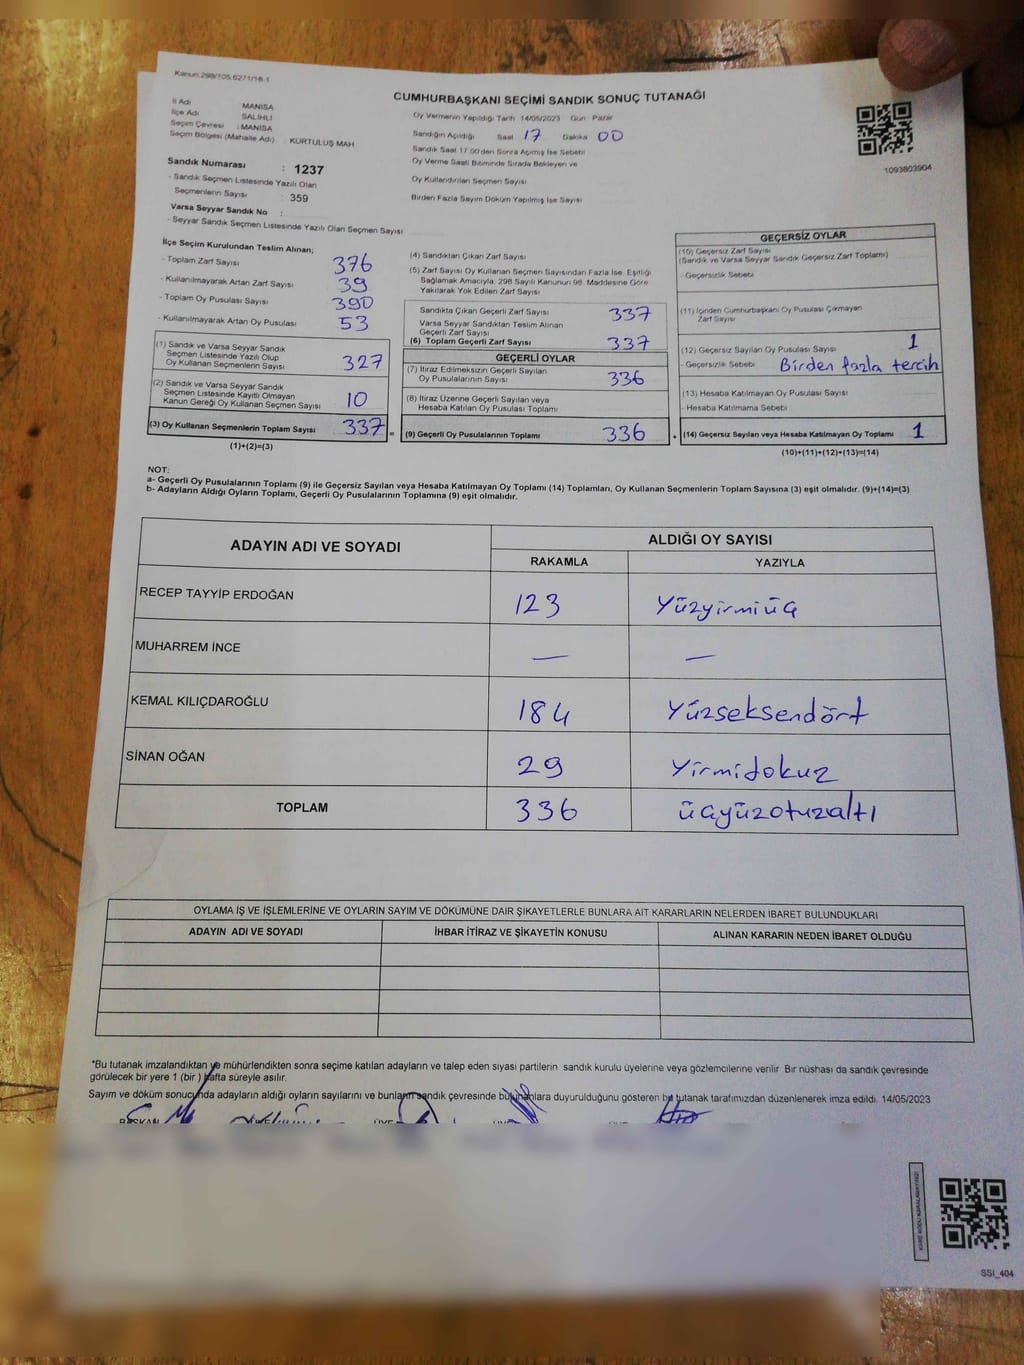 Kanun:298/105,6271/18-1
CUMHURBAŞKANI SEÇİMİ SANDIK SONUÇ TUTANAĞI
İl Adı MANİSA
İlçe Adı SALİHLİ
Seçim Çevresi : MANİSA
Seçim Bölgesi (Mahalle Adı) KURTULUŞ MAH
Sandık Numarası : 1237
- Sandık Seçmen Listesinde Yazılı Olan
Seçmenlerin Sayısı : 359
Varsa Seyyar Sandık No :
- Seyyar Sandık Seçmen Listesinde Yazılı Olan Seçmen Sayısı
Oy Vermenin Yapıldığı Tarih 14/05/2023 Gün Pazar
Sandığın Açıldığı Saat 17 Dakika 00
Sandık Saat 17 00'den Sonra Açılmış İse Sebebi
Oy Verme Saati Bitiminde Sırada Bekleyen ve
Oy Kullandırılan Seçmen Sayısı
Birden Fazla Sayım Döküm Yapılmış İse Sayısı
1093803904
İlçe Seçim Kurulundan Teslim Alınan;
- Toplam Zarf Sayısı 376
- Kullanılmayarak Artan Zarf Sayısı 39
- Toplam Oy Pusulası Sayısı 390
- Kullanılmayarak Artan Oy Pusulası 53
(1) Sandık ve Varsa Seyyar Sandık
Seçmen Listesinde Yazılı Olup
Oy Kullanan Seçmenlerin Sayısı 327
(2) Sandık ve Varsa Seyyar Sandık
Seçmen Listesinde Kayıtlı Olmayan
Kanun Gereği Oy Kullanan Seçmen Sayısı 10
(3) Oy Kullanan Seçmenlerin Toplam Sayısı 337
(1)+(2)=(3)
(4) Sandıktan Çıkan Zarf Sayısı
(5) Zarf Sayısı Oy Kullanan Seçmen Sayısından Fazla İse, Eşitliği
Sağlamak Amacıyla, 298 Sayılı Kanunun 98. Maddesine Göre
Yakılarak Yok Edilen Zarf Sayısı
Sandıkta Çıkan Geçerli Zarf Sayısı 337
Varsa Seyyar Sandıktan Teslim Alınan
Geçerli Zarf Sayısı
(6) Toplam Geçerli Zarf Sayısı 337
GEÇERLİ OYLAR
(7) İtiraz Edilmeksizin Geçerli Sayılan
Oy Pusulalarının Sayısı 336
(8) İtiraz Üzerine Geçerli Sayılan veya
Hesaba Katılan Oy Pusulası Toplamı
= (9) Geçerli Oy Pusulalarının Toplamı 336
GEÇERSİZ OYLAR
(10) Geçersiz Zarf Sayısı
(Sandık ve Varsa Seyyar Sandık Geçersiz Zarf Toplamı)
- Geçersizlik Sebebi
(11) İçinden Cumhurbaşkanı Oy Pusulası Çıkmayan
Zarf Sayısı
(12) Geçersiz Sayılan Oy Pusulası Sayısı 1
- Geçersizlik Sebebi Birden fazla tercih
(13) Hesaba Katılmayan Oy Pusulası Sayısı
- Hesaba Katılmama Sebebi
+ (14) Geçersiz Sayılan veya Hesaba Katılmayan Oy Toplamı 1
(10)+(11)+(12)+(13)=(14)
NOT:
a- Geçerli Oy Pusulalarının Toplamı (9) ile Geçersiz Sayılan veya Hesaba Katılmayan Oy Toplamı (14) Toplamları, Oy Kullanan Seçmenlerin Toplam Sayısına (3) eşit olmalıdır. (9)+(14)=(3)
b- Adayların Aldığı Oyların Toplamı, Geçerli Oy Pusulalarının Toplamına (9) eşit olmalıdır.
ADAYIN ADI VE SOYADI ALDIĞI OY SAYISI
RAKAMLA YAZIYLA
RECEP TAYYİP ERDOĞAN 123 Yüzyirmiüç
MUHARREM İNCE — —
KEMAL KILIÇDAROĞLU 184 Yüzseksendört
SİNAN OĞAN 29 Yirmidokuz
TOPLAM 336 üçyüzotuzaltı
OYLAMA İŞ VE İŞLEMLERİNE VE OYLARIN SAYIM VE DÖKÜMÜNE DAİR ŞİKAYETLERLE BUNLARA AİT KARARLARIN NELERDEN İBARET BULUNDUKLARI
ADAYIN ADI VE SOYADI İHBAR İTİRAZ VE ŞİKAYETİN KONUSU ALINAN KARARIN NEDEN İBARET OLDUĞU
*Bu tutanak imzalandıktan ve mühürlendikten sonra seçime katılan adayların ve talep eden siyasi partilerin sandık kurulu üyelerine veya gözlemcilerine verilir Bir nüshası da sandık çevresinde
görülecek bir yere 1 (bir) hafta süreyle asılır.
Sayım ve döküm sonucunda adayların aldığı oyların sayılarını ve bunların sandık çevresinde bulunanlara duyurulduğunu gösteren bu tutanak tarafımızdan düzenlenerek imza edildi. 14/05/2023
BAŞKAN
SSI_404